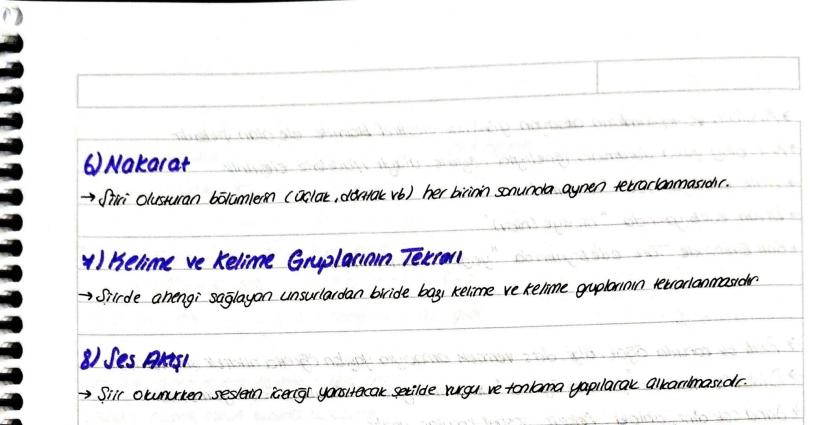 6) Nakarat
→ Şiiri oluşturan bölümlerin (üçlük, dörtlük vb) her birinin sonunda aynen tekrarlanmasıdır.
7) Kelime ve Kelime Gruplarının Tekrarı
→ Şiirde ahengi sağlayan unsurlardan biride bazı kelime ve kelime gruplarının tekrarlanmasıdır.
8) Ses Akışı
→ Şiir okunurken seslerin içeriği yansıtacak şekilde vurgu ve tonlama yapılarak çıkarılmasıdır.